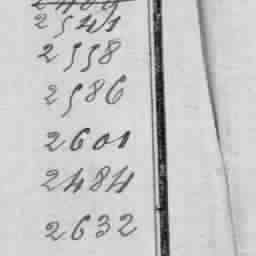 2541
2558
2586
2601
2484
2632